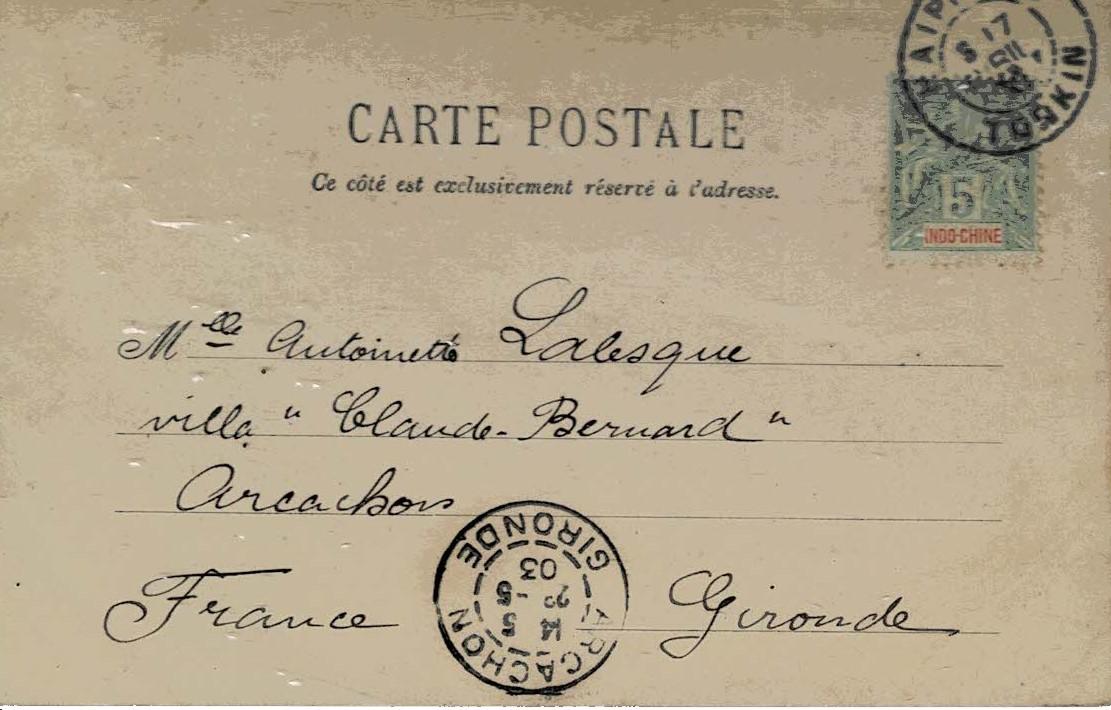 CARTE POSTALE
Ce côté est exclusivement réservé à l'adresse.
TONKIN
5
INDO-CHINE
Mlle Antoinette Lalesque
villa "Claude-Bernard"
Arcachon
France Gironde
ARCACHON
14 5
03
GIRONDE